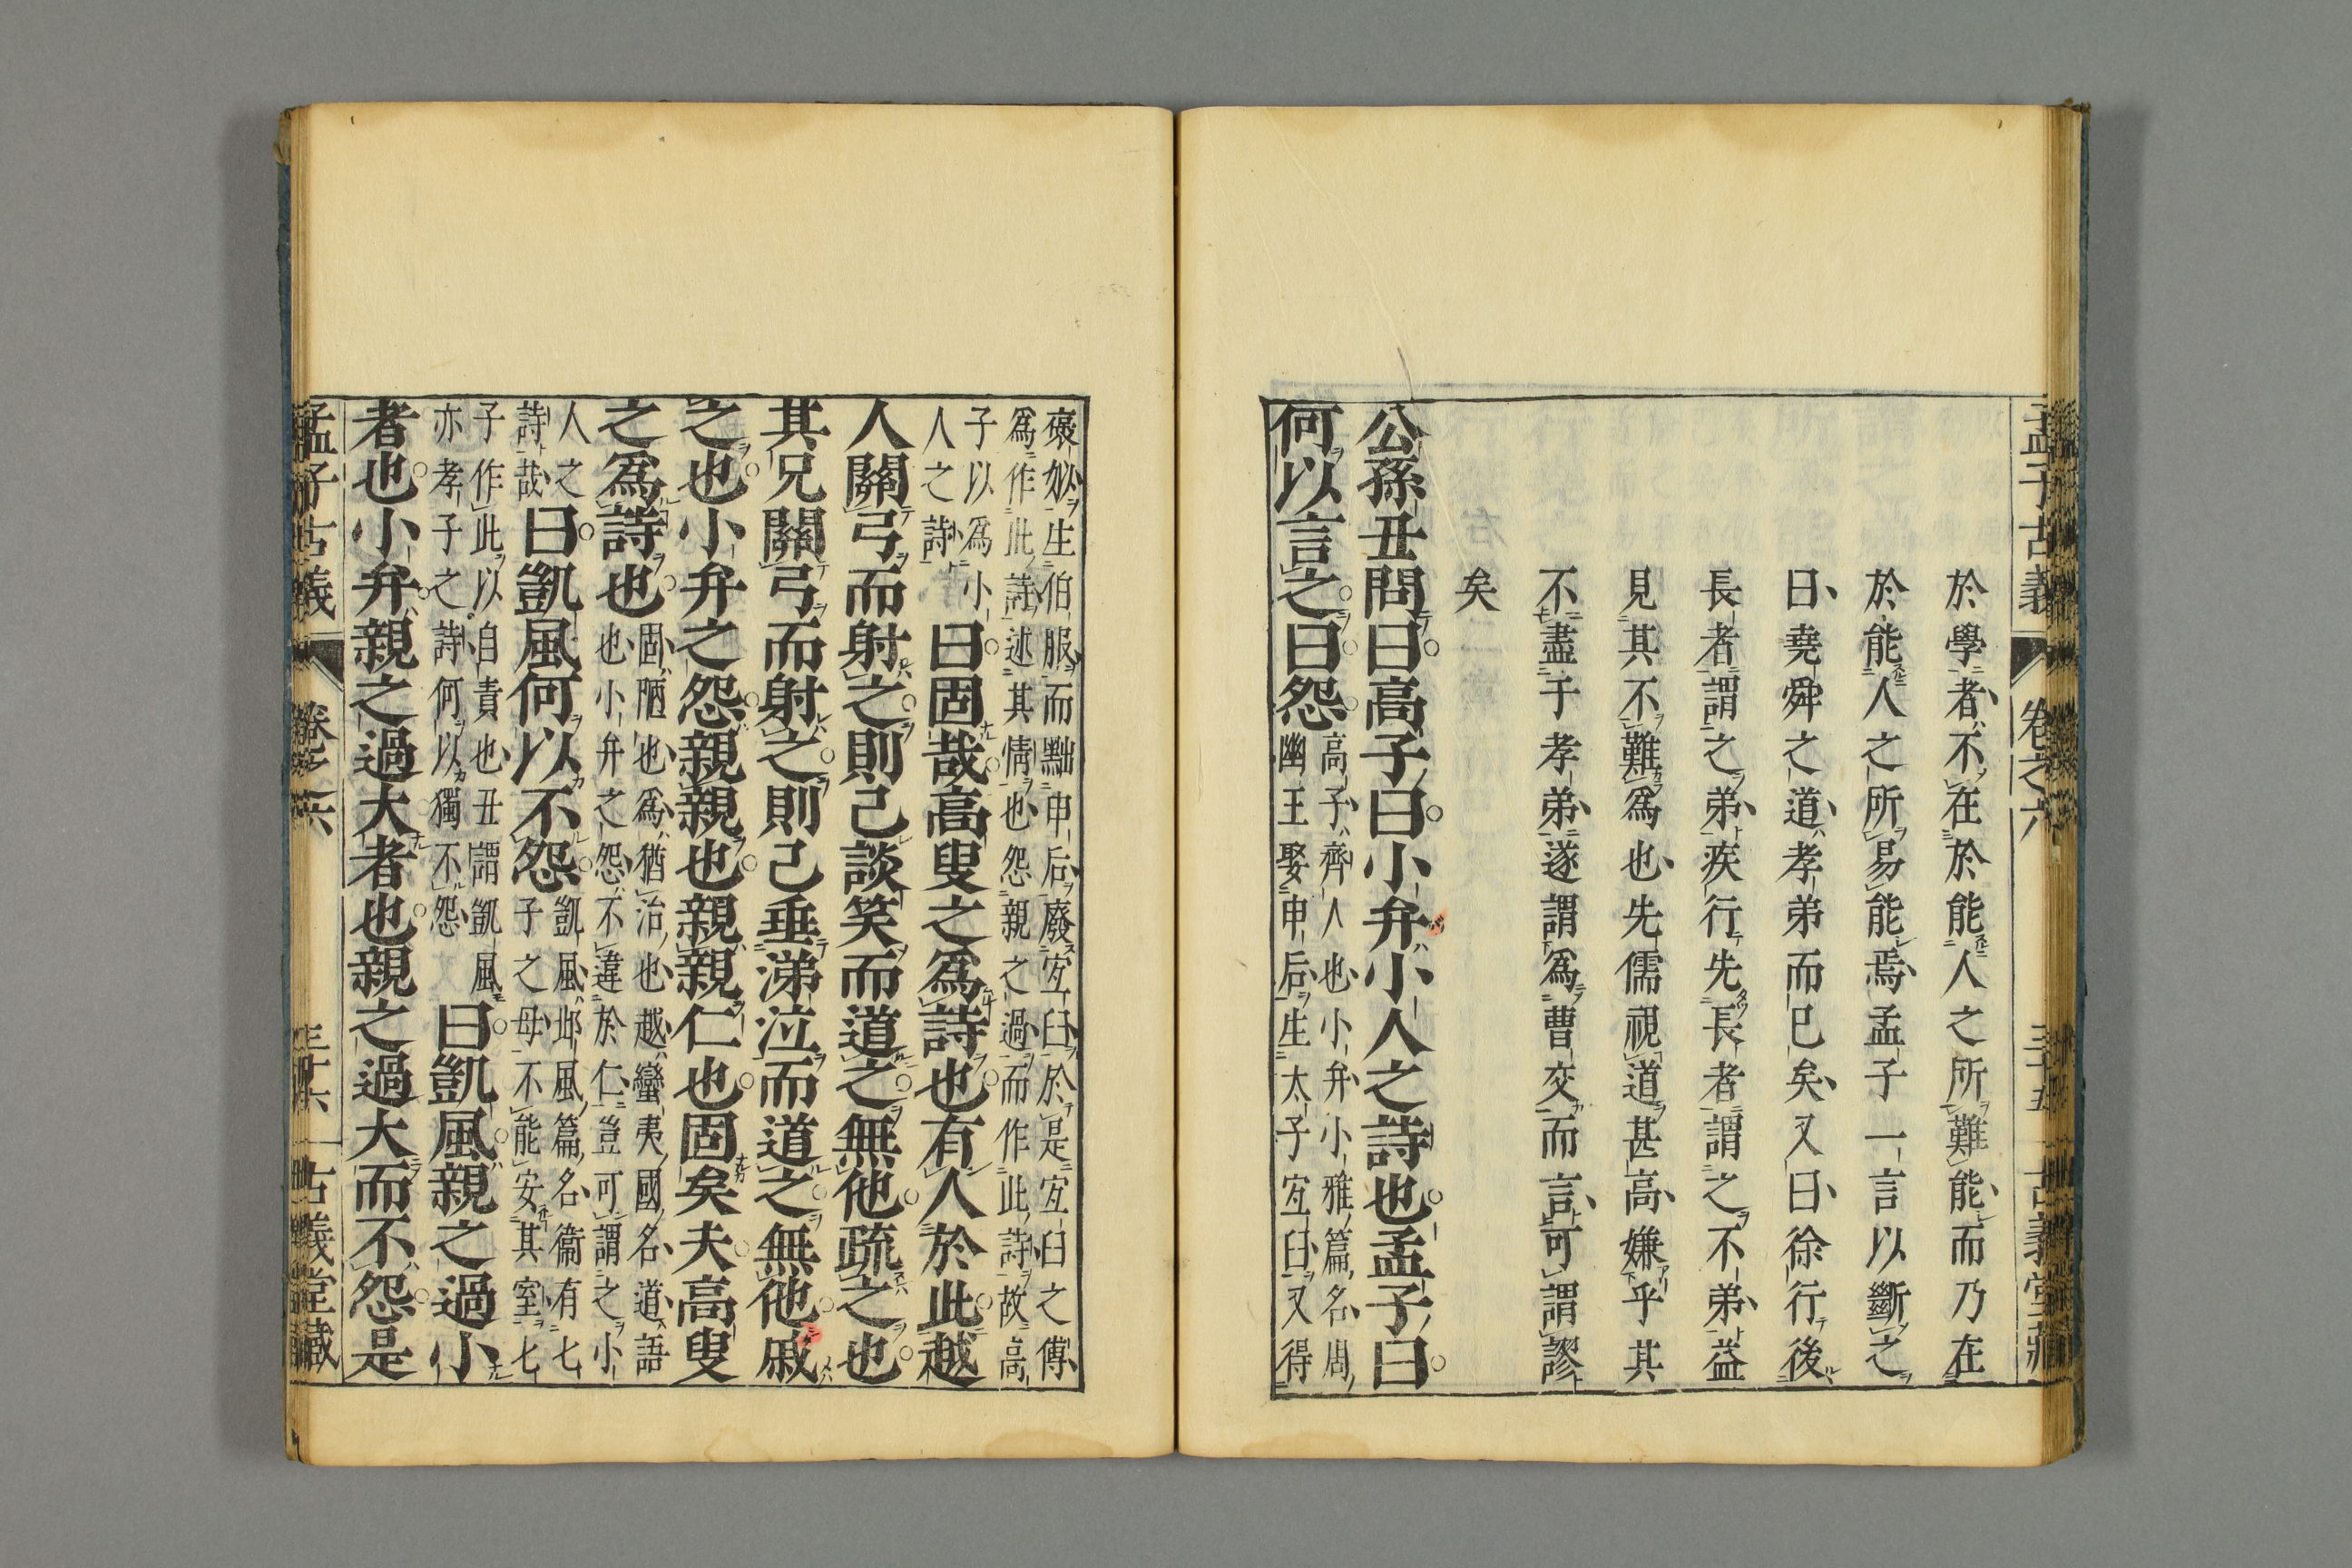 孟子古義 卷之六 三十五 古義堂藏
於學者不在於能人之所難能而乃在
於能人之所易能焉孟子一言以斷之
曰堯舜之道孝弟而已矣又曰徐行後
長者謂之弟疾行先長者謂之不弟益
見其不難爲也先儒視道甚高嫌乎其
不盡于孝弟遂謂爲曹交而言可謂謬
矣
公孫丑問曰高子曰小弁小人之詩也孟子曰
何以言之曰怨
高子齊人也小弁小雅篇名周
幽王娶申后生太子宜臼又得
褒姒生伯服而黜申后廢宜臼於是宜臼之傅
爲作此詩述其情也怨親之過而作此詩故高
子以爲小
人之詩
曰固哉高叟之爲詩也有人於此越
人關弓而射之則己談笑而道之無他疏之也
其兄關弓而射之則己垂涕泣而道之無他戚
之也小弁之怨親親也親親仁也固矣夫高叟
之爲詩也
固陋也爲猶治也越蠻夷國名道語
也小弁之怨不違於仁豈可謂之小
人之
詩哉
曰凱風何以不怨
凱風邶風篇名衞有七
子之母不能安其室七
子作此以自責也丑謂凱風
亦孝子之詩何以獨不怨
曰凱風親之過小
者也小弁親之過大者也親之過大而不怨是
孟子古義 卷之六 三十六 古義堂藏